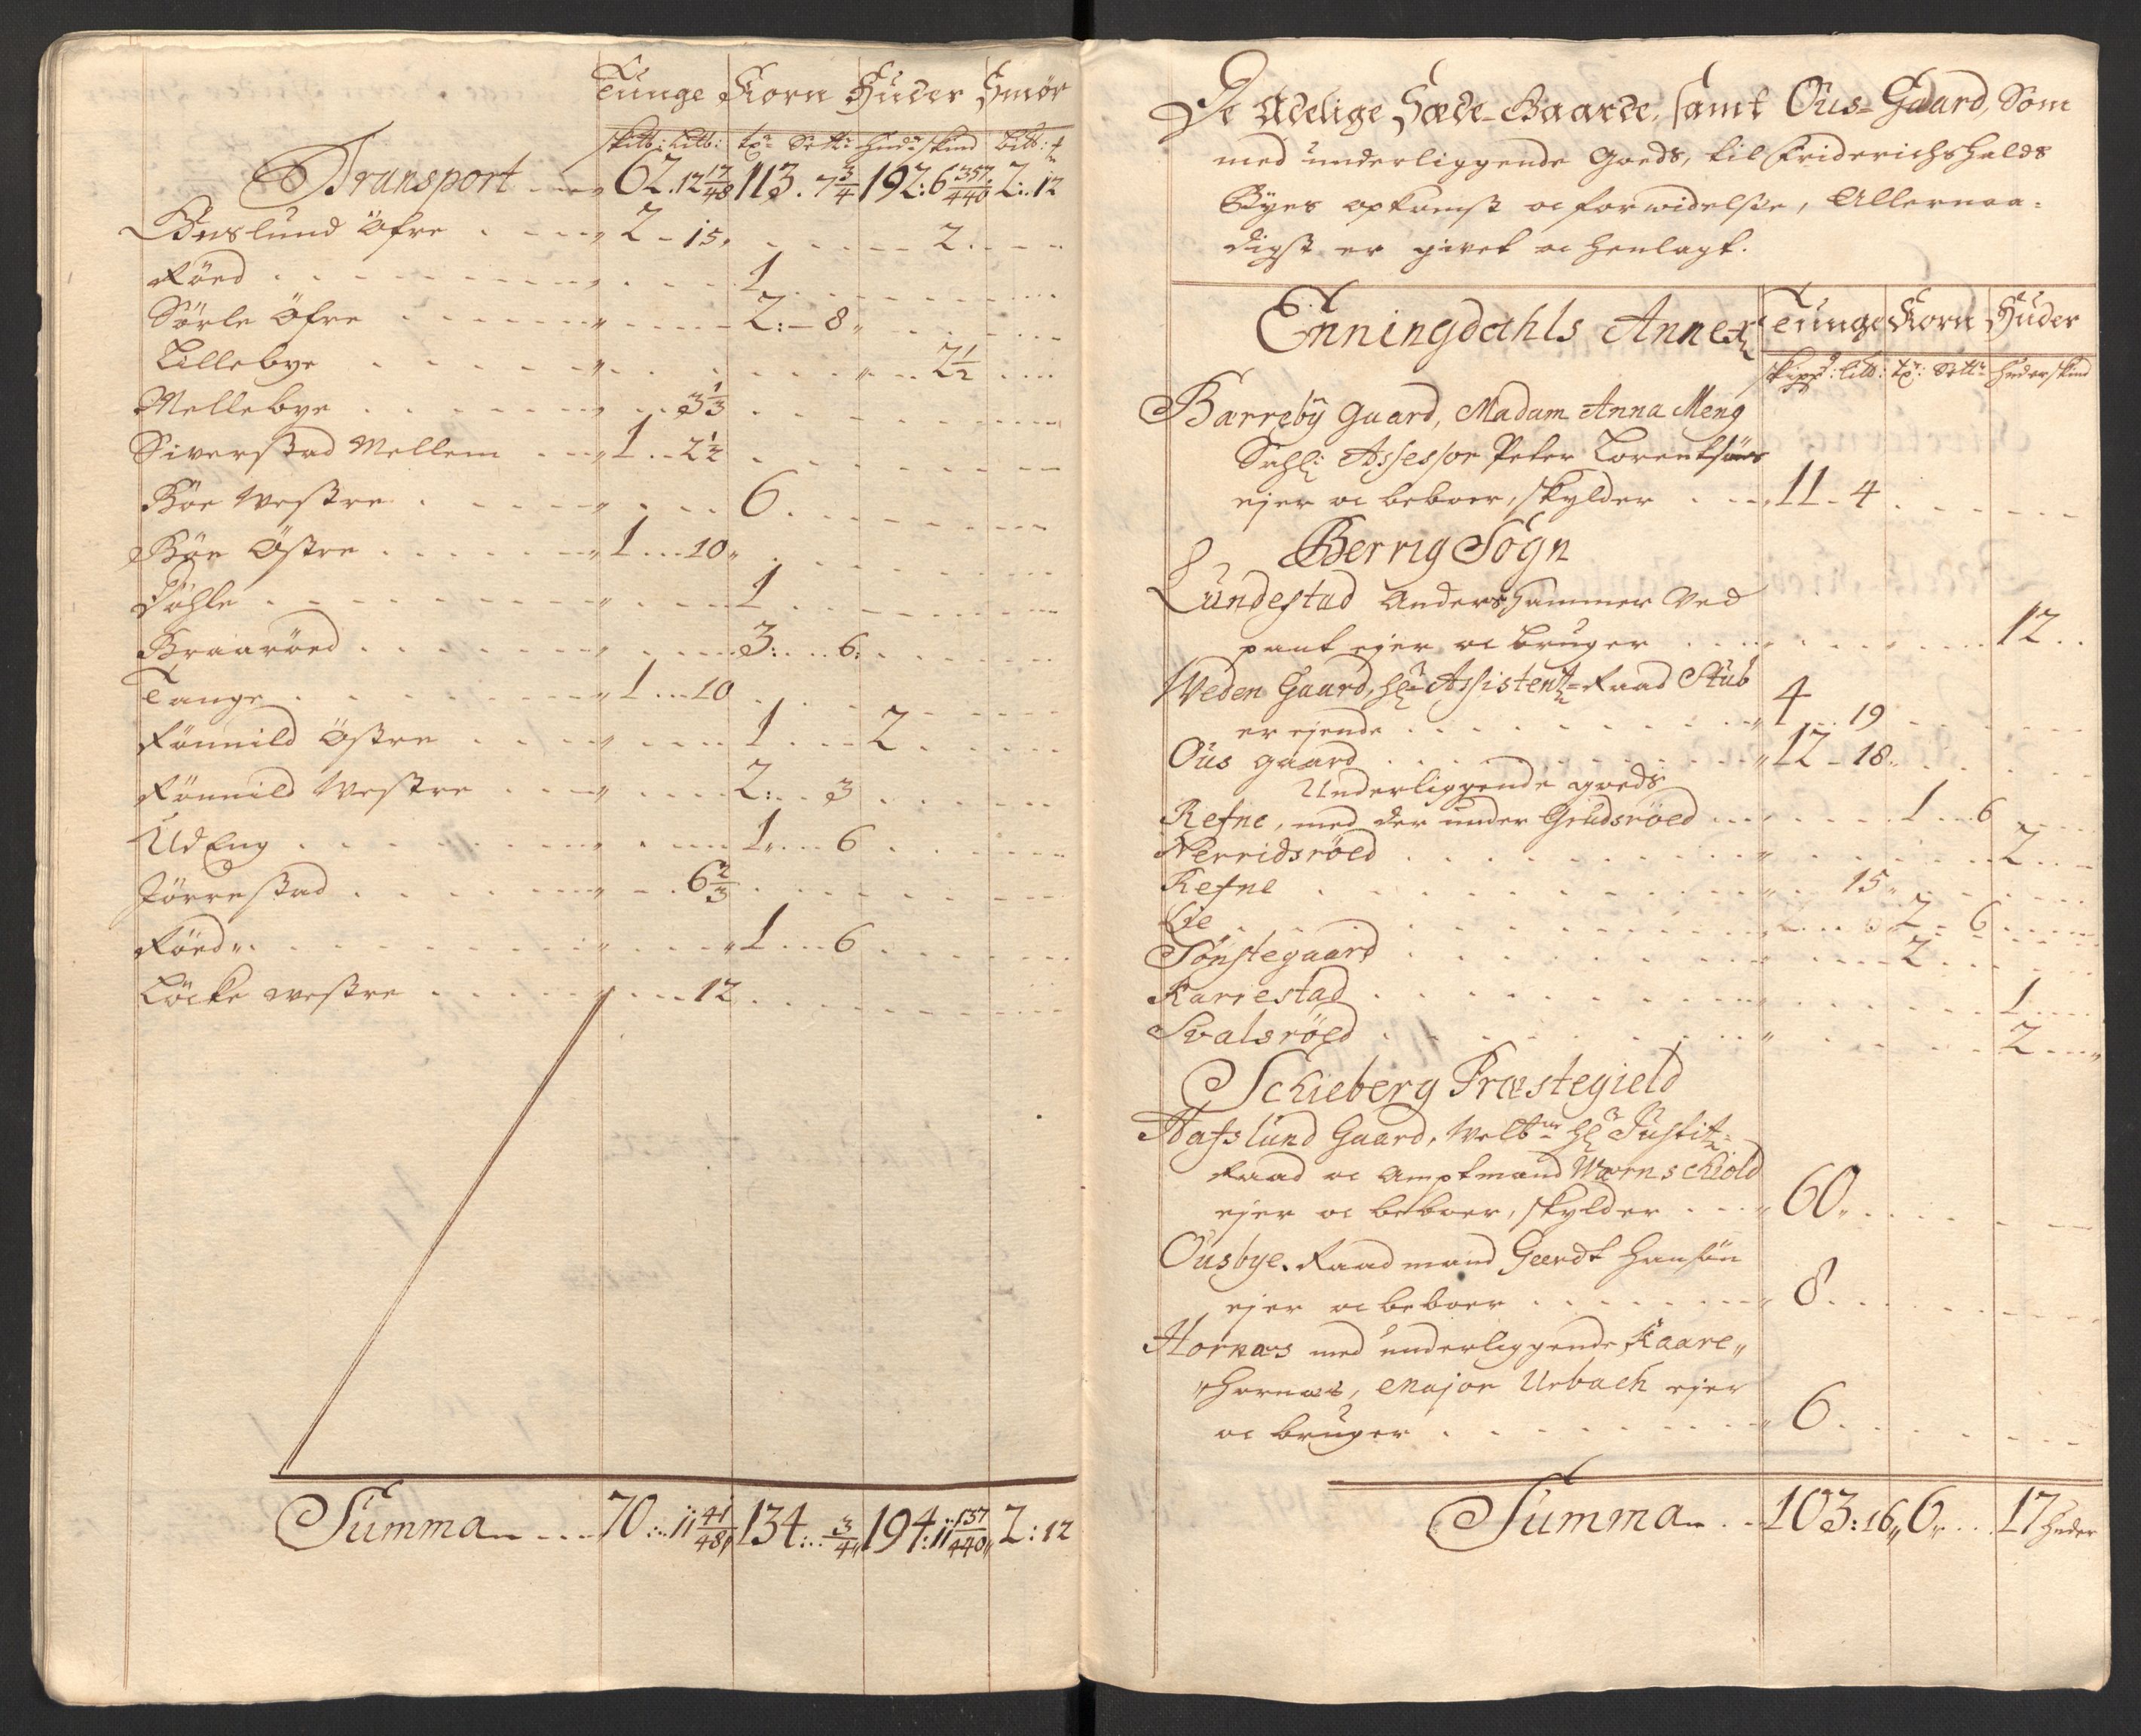 Tunge Korn Huder Smör
skƖb: LƖb: tr Sett: hud: skind bƖb: 
Transport 62. 12 17/48 113. 7 3/4 192: 6 357/440 2: 12
Buslund Öfre 2 - 15 2
Röed 1
Sörle Öfre 2: - 8
Lillebye 2 1/2
Mellebye 3 1/3
Siverstad Mellem 1 .. 2 1/2
Böe Westre 6
Böe Östre 1 ... 10
Dahle 1
Braaröed 3: .. 6:
Tange 1 ... 10
Rönnild Östre 1 2
Rönnild Westre 2: .. 3
UdEng 1 ... 6
Jörrestad 6 2/3
Röed 1 ... 6
Löcke westre 12
Summa 70: 11 41/48 134: 3/4 194: 11 137/440 2: 12
De Adelige Sæde-Gaarde, samt Ous-Gaard, Som
med underliggende Goeds, til Friderichshalds
Byes opkomst oc forwidelse, Allernaa-
digst er givet oc henlagt.
Enningdahls Annex Tunge Korn Huder
skippd: LƖb: tr: Sett: Huder skind
Barreby Gaard, Madam Anna Meng
Sahl: Assessor Peter Lorentsöns
ejer oc beboer, skylder 11 - 4
Berrig Sogn
Lundestad Anders Hammer Ved
pant ejer oc bruger 12
Weden Gaard, Hr Assistent-Raad Stub
er ejende 4 .. 19
Ous gaard 12 - 18
Underliggende goeds
Refne, med der under Grudsröed 1 .. 6
Nerridsröed 2
Refne 15
Lie 2 - 6
Tönstegaard 2
Karrestad 1
Svalsröed 2
Schieberg Præstegield
Hafslund Gaard, Welbr Hr Justitz-
Raad oc Amptmand Wærnschiold
ejer oc beboer, skylder 60
Ousbye. Raadmand Geerdt Hansön
ejer oc beboer 8
Hornæs med underliggende Kaare
Hornæs, Major Urbach ejer
oc bruger 6
Summa 103: 16 6 17 huder